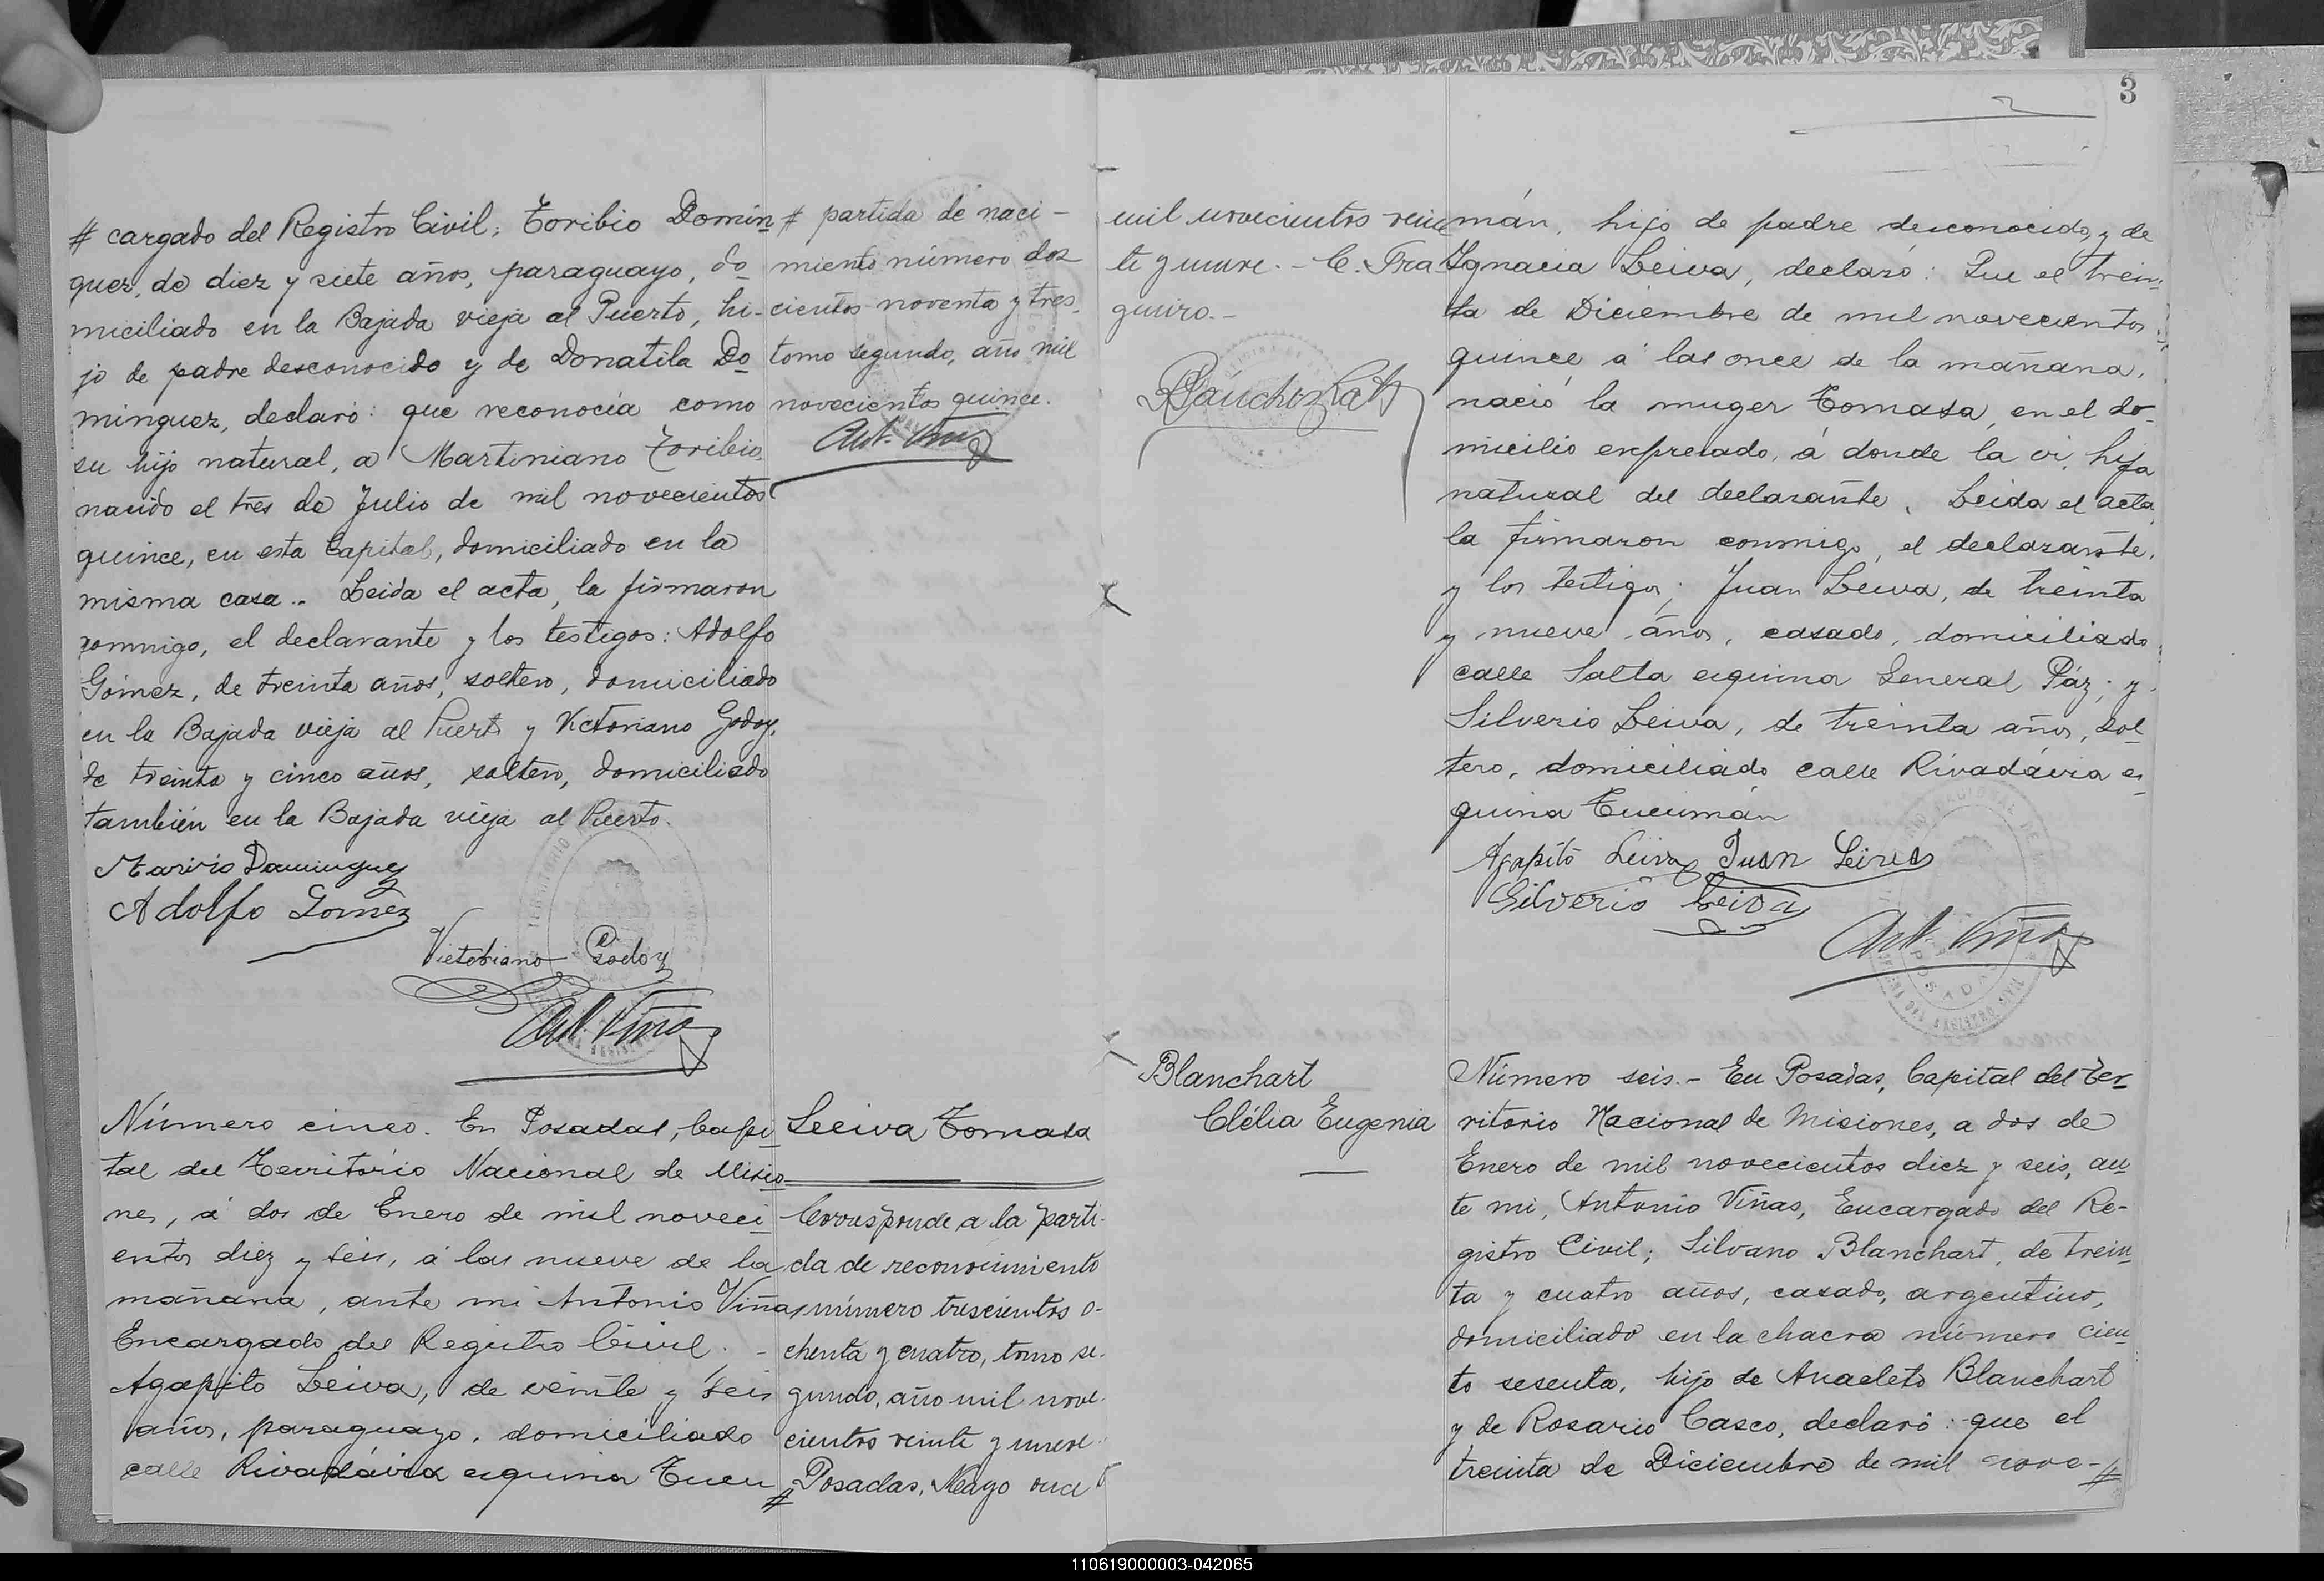 # cargado del Registro Civil; Toribio Domin
guez, de diez y siete años, paraguayo, do
miciliado en la Bajada vieja al Puerto, hi-
jo de padre desconocido y de Donatila Do
minguez, declaró: que reconocía como
su hijo natural, a Martiniano Toribio,
nacido el tres de Julio de mil novecientos
quince, en esta Capital, domiciliado en la
misma casa.. Leida el acta, la firmaron
conmigo, el declarante y los testigos: Adolfo
Gómez, de treinta años, soltero, domiciliado
en la Bajada vieja al Puerto y Victoriano Godoy,
de treinta y cinco años, soltero, domiciliado
también en la Bajada vieja al Puerto.
Dominguez
Adolfo Gomez
Victoriano Godoy
Ant. Viñas
# partida de naci-
miento número dos
cientos noventa y tres,
tomo segundo, año mil
novecientos quince.
Ant. Viñas
Número cinco. En Posadas, Capi
tal del Territorio Nacional de Misio
nes, á dos de Enero de mil noveci
entos diez y seis, á las nueve de la
mañana, ante mi Antonio Viñas
Encargado del Registro Civil. -
Agapito Leiva, de veinte y seis
años, paraguayo, domiciliado
calle Rivadávia esquina Tucu
#
Leeiva Tomasa
Corresponde a la parti-
da de reconocimiento
número trescientos o-
chenta y cuatro, tomo se-
gundo, año mil nove-
cientos veinte y nueve.
Posadas, Mayo once
3
2
mil novecientos vein
te y nueve. - C. Fra
guiro. -
mán, hijo de padre desconocido, y de
Ygnacia Leiva, declaró: Que el trein-
ta de Diciembre de mil novecientos
quince á las once de la mañana,
nació la muger Tomasa, en el do-
micilio expresado, á donde la vi, hija
natural del declarante. Leida el acta,
la firmaron conmigo, el declarante,
y los testigos; Juan Leiva, de treinta
y nueve años, casado, domiciliado
calle Salta esquina General Páz; y
Silverio Leiva, de treinta años, sol
tero, domiciliado calle Rivadávia es
quina Tucumán
Agapito Leiva Juan Leiva
Silverio Leiva
Ant. Viñas
POSADAS
Blanchart
Clélia Eugenia
Número seis. - En Posadas, Capital del Ter
ritorio Nacional de Misiones, a dos de
Enero de mil novecientos diez y seis, an
te mi, Antonio Viñas, Encargado del Re-
gistro Civil; Silvano Blanchart, de trein
ta y cuatro años, casado, argentino,
domiciliado en la chacra número cien
to sesenta, hijo de Anacleto Blanchart
y de Rosario Casco, declaró: que el
treinta de Diciembre de mil nove-#
110619000003-042065